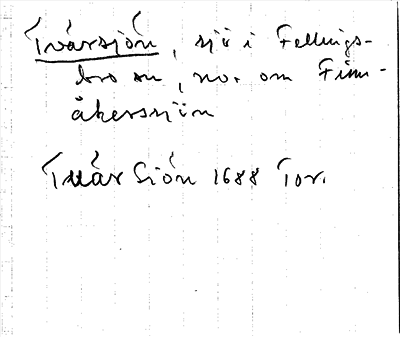 Tvärsjön, sjö i Fellings-
bro sn, no. om Finn-
åkerssjön
Tuär Siön 1688 Tor.